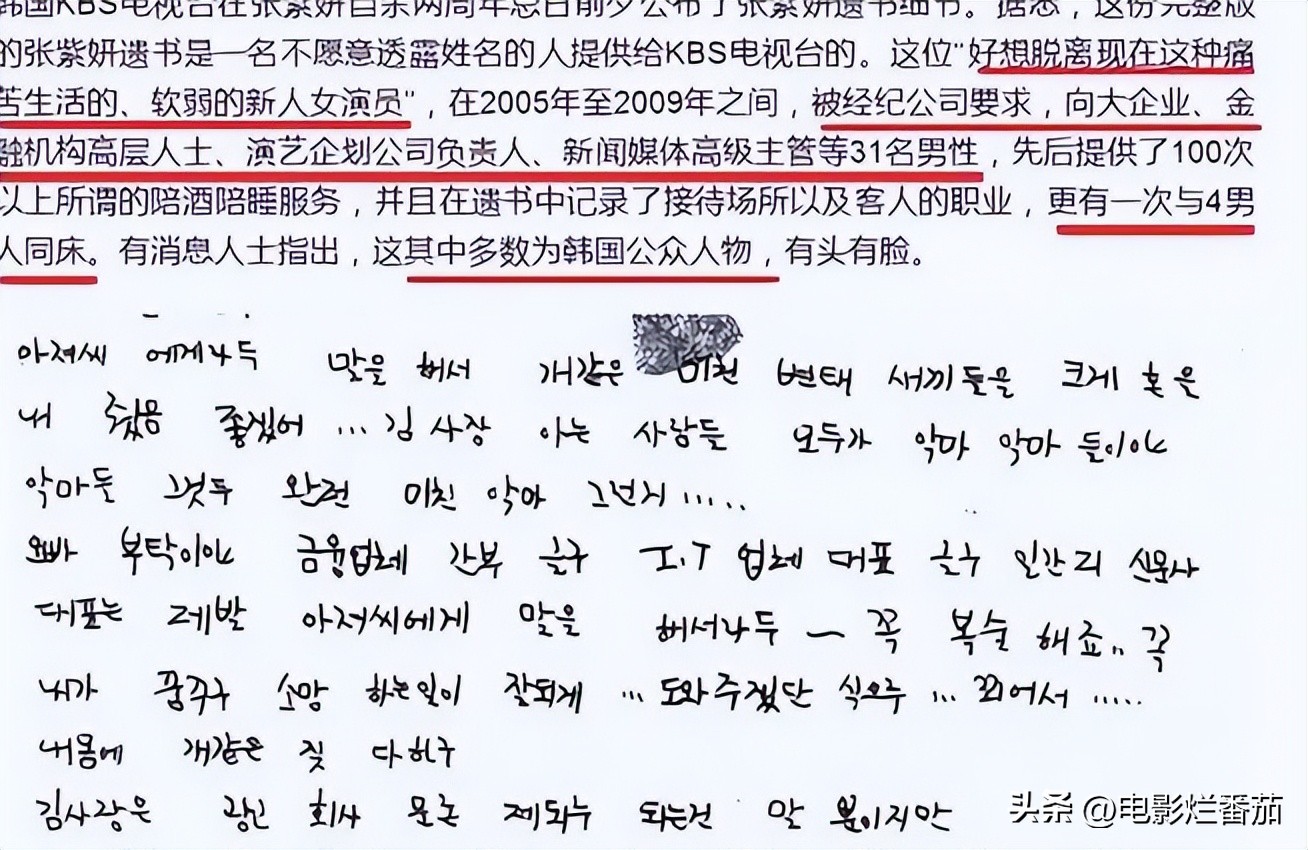 韩国KBS电视台在张紫妍自杀两周年忌日前夕公布了张紫妍遗书细节。据悉，这份完整版
的张紫妍遗书是一名不愿意透露姓名的人提供给KBS电视台的。这位“好想脱离现在这种痛
苦生活的、软弱的新人女演员”，在2005年至2009年之间，被经纪公司要求，向大企业、金
融机构高层人士、演艺企划公司负责人、新闻媒体高级主管等31名男性，先后提供了100次
以上所谓的陪酒陪睡服务，并且在遗书中记录了接待场所以及客人的职业，更有一次与4男
人同床。有消息人士指出，这其中多数为韩国公众人物，有头有脸。
아저씨 에게나두 말을 해서 개같은 미친 변태 새끼들을 크게 혼을
내 줬음 좋겠어 ... 김 사장 아는 사람들 모두가 악마 악마 들이야
악마들 그것두 완전 미친 악마 그런거 .....
오빠 부탁이야 금융업체 간부 글구 I.T 업체 대표 글구 일간지 신문사
대표는 제발 아저씨에게 말을 해서나두 ~ 꼭 복수 해죠.. 꼭
내가 꿈꾸구 소망 하는일이 잘되게 ... 도와주겠단 식으루 ... 꾀어서 .....
내몸에 개같은 짓 다하구
김사장은 회사 문 제되는 말 뿐이지만
头条 @电影烂番茄